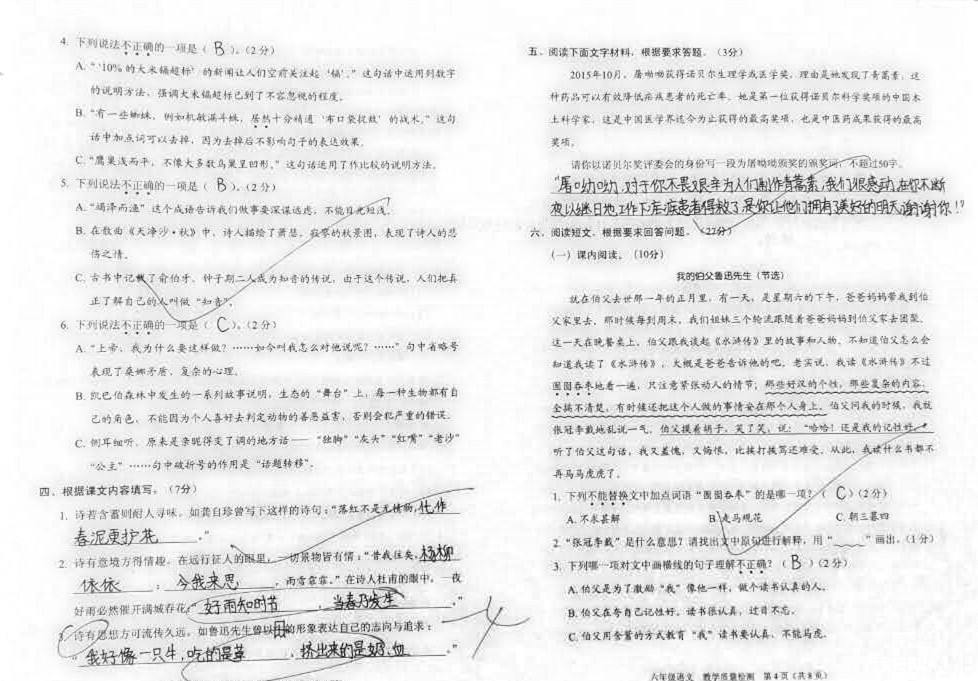 4. 下列说法不正确的一项是（ B ）。（2分）
A. “‘10%的大米镉超标’的新闻让人们空前关注起‘镉’。”这句话中运用列数字
的说明方法，强调大米镉超标已到了不容忽视的程度。
B. “有一些蜘蛛，例如机敏漏斗蛛，居然十分精通‘布口袋捉敌’的战术。”这句
话中加点词可以去掉，因为去掉后不影响句子的表达效果。
C. “鹰巢浅而平，不像大多数鸟巢呈凹形。”这句话运用了作比较的说明方法。
5. 下列说法不正确的一项是（ B ）。（2分）
A. “竭泽而渔”这个成语告诉我们做事要深谋远虑，不能目光短浅。
B. 在散曲《天净沙·秋》中，诗人描绘了萧瑟、寂寥的秋景图，表现了诗人的悲
伤之情。
C. 古书中记载了俞伯牙、钟子期二人成为知音的传说，由于这个传说，人们把真
正了解自己的人叫做“知音”。
6. 下列说法不正确的一项是（ C ）。（2分）
A. “上帝，我为什么要这样做？……如今叫我怎么对他说呢？……”句中省略号
表现了桑娜矛盾、复杂的心理。
B. 凯巴伯森林中发生的一系列故事说明，生态的“舞台”上，每一种生物都有自
己的角色，不能因为个人喜好去判定动物的善恶益害，否则会犯严重的错误。
C. 侧耳细听，原来是亲昵得变了调的地方话——“独脚”“灰头”“红嘴”“老沙”
“公主”……句中破折号的作用是“话题转移”。
四、根据课文内容填写。（7分）
1. 诗若含蓄则耐人寻味，如龚自珍曾写下这样的诗句：“落红不是无情物，化作
春泥更护花。”
2. 诗有意境方得情趣，在远行征人的眼里，一切景物皆有情：“昔我往矣，杨柳
依依；今我来思，雨雪霏霏。”在诗人杜甫的眼中，一夜
好雨必然催开满城春花：“好雨知时节，当春乃发生。”
3. 诗有思想方可流传久远，如鲁迅先生曾以的形象表达自己的志向与追求：
“我好像一只牛，吃的是草，挤出来的是奶、血。”
五、阅读下面文字材料，根据要求答题。（3分）
2015年10月，屠呦呦获得诺贝尔生理学或医学奖，理由是她发现了青蒿素，这
种药品可以有效降低疟疾患者的死亡率。她是第一位获得诺贝尔科学奖项的中国本
土科学家，这是中国医学界迄今为止获得的最高奖项，也是中医药成果获得的最高
奖项。
请你以诺贝尔奖评委会的身份写一段为屠呦呦颁奖的颁奖词，不超过50字。
“屠呦呦，对于你不畏艰辛为人们制作青蒿素，我们很感动，在你不断
夜以继日地工作下，疟疾患者得救了，是你让他们拥有美好的明天，谢谢你！”
六、阅读短文，根据要求回答问题。（27分）
（一）课内阅读。（10分）
我的伯父鲁迅先生（节选）
就在伯父去世那一年的正月里，有一天，是星期六的下午，爸爸妈妈带我到伯
父家里去。那时候每到周末，我们姐妹三个轮流跟随着爸爸妈妈到伯父家去团聚。
这一天在晚餐桌上，伯父跟我谈起《水浒传》里的故事和人物。不知道伯父怎么会
知道我读了《水浒传》，大概是爸爸告诉他的吧。老实说，我读《水浒传》不过
囫囵吞枣地看一遍，只注意紧张动人的情节；那些好汉的个性，那些复杂的内容，
全搞不清楚，有时候还把这个人做的事情安在那个人身上。伯父问我的时候，我就
张冠李戴地乱说一气。伯父摸着胡子，笑了笑，说：“哈哈！还是我的记性好。”
听了伯父这句话，我又羞愧，又悔恨，比挨打挨骂还难受。从此，我读什么书都不
再马马虎虎了。
1. 下列不能替换文中加点词语“囫囵吞枣”的是哪一项？（ C ）（2分）
A. 不求甚解 B. 走马观花 C. 朝三暮四
2. “张冠李戴”是什么意思？请找出文中原句进行解释，用“﹏﹏”画出。（1分）
3. 下列哪一项对文中画横线的句子理解不正确？（ B ）（2分）
A. 伯父是为了激励“我”像他一样，做个读书认真的人。
B. 伯父在夸自己记性好，读书很认真，过目不忘。
C. 伯父用含蓄的方式教育“我”读书要认真，不能马虎。
六年级语文 教学质量检测 第4页（共8页）